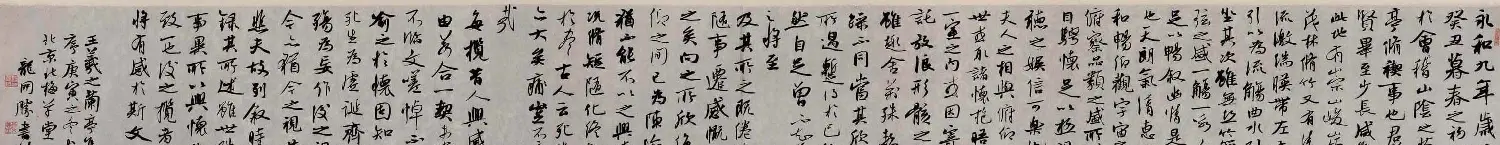 永和九年歲
癸丑暮春之初
於會稽山陰之
亭脩禊事也
賢畢至少長咸
此地有崇山峻
茂林脩竹又有清
流激湍暎帶左
引以為流觴曲水列
坐其次雖無絲竹
弦之盛一觴一詠
足以暢叙幽情是
也天朗氣清惠
和暢仰觀宇宙
俯察品類之盛所
目騁懷足以極視
聽之娛信可樂
夫人之相與俯仰
世或取諸懷抱晤
一室之內或因寄
託放浪形骸之
雖趣舍萬殊靜
躁不同當其欣
所遇蹔得於己
然自足曾不知
之將至
及其所之既倦
隨事遷感慨
之矣向之所欣俛
仰之間已為陳
猶不能不以之興
況脩短隨化終
於盡古人云死
亦大矣痛
哉
每攬昔人興感
由若合一契未
不臨文嗟悼不
喻之於懷固知
死生為虛誕齊
殤為妄作後之視
今亦猶今之視
悲夫故列叙時
錄其所述雖世
事異所以興懷
致一也後之攬者
將有感於斯文
王羲之蘭亭
序庚寅之冬
北京北梅草堂
龍開勝書